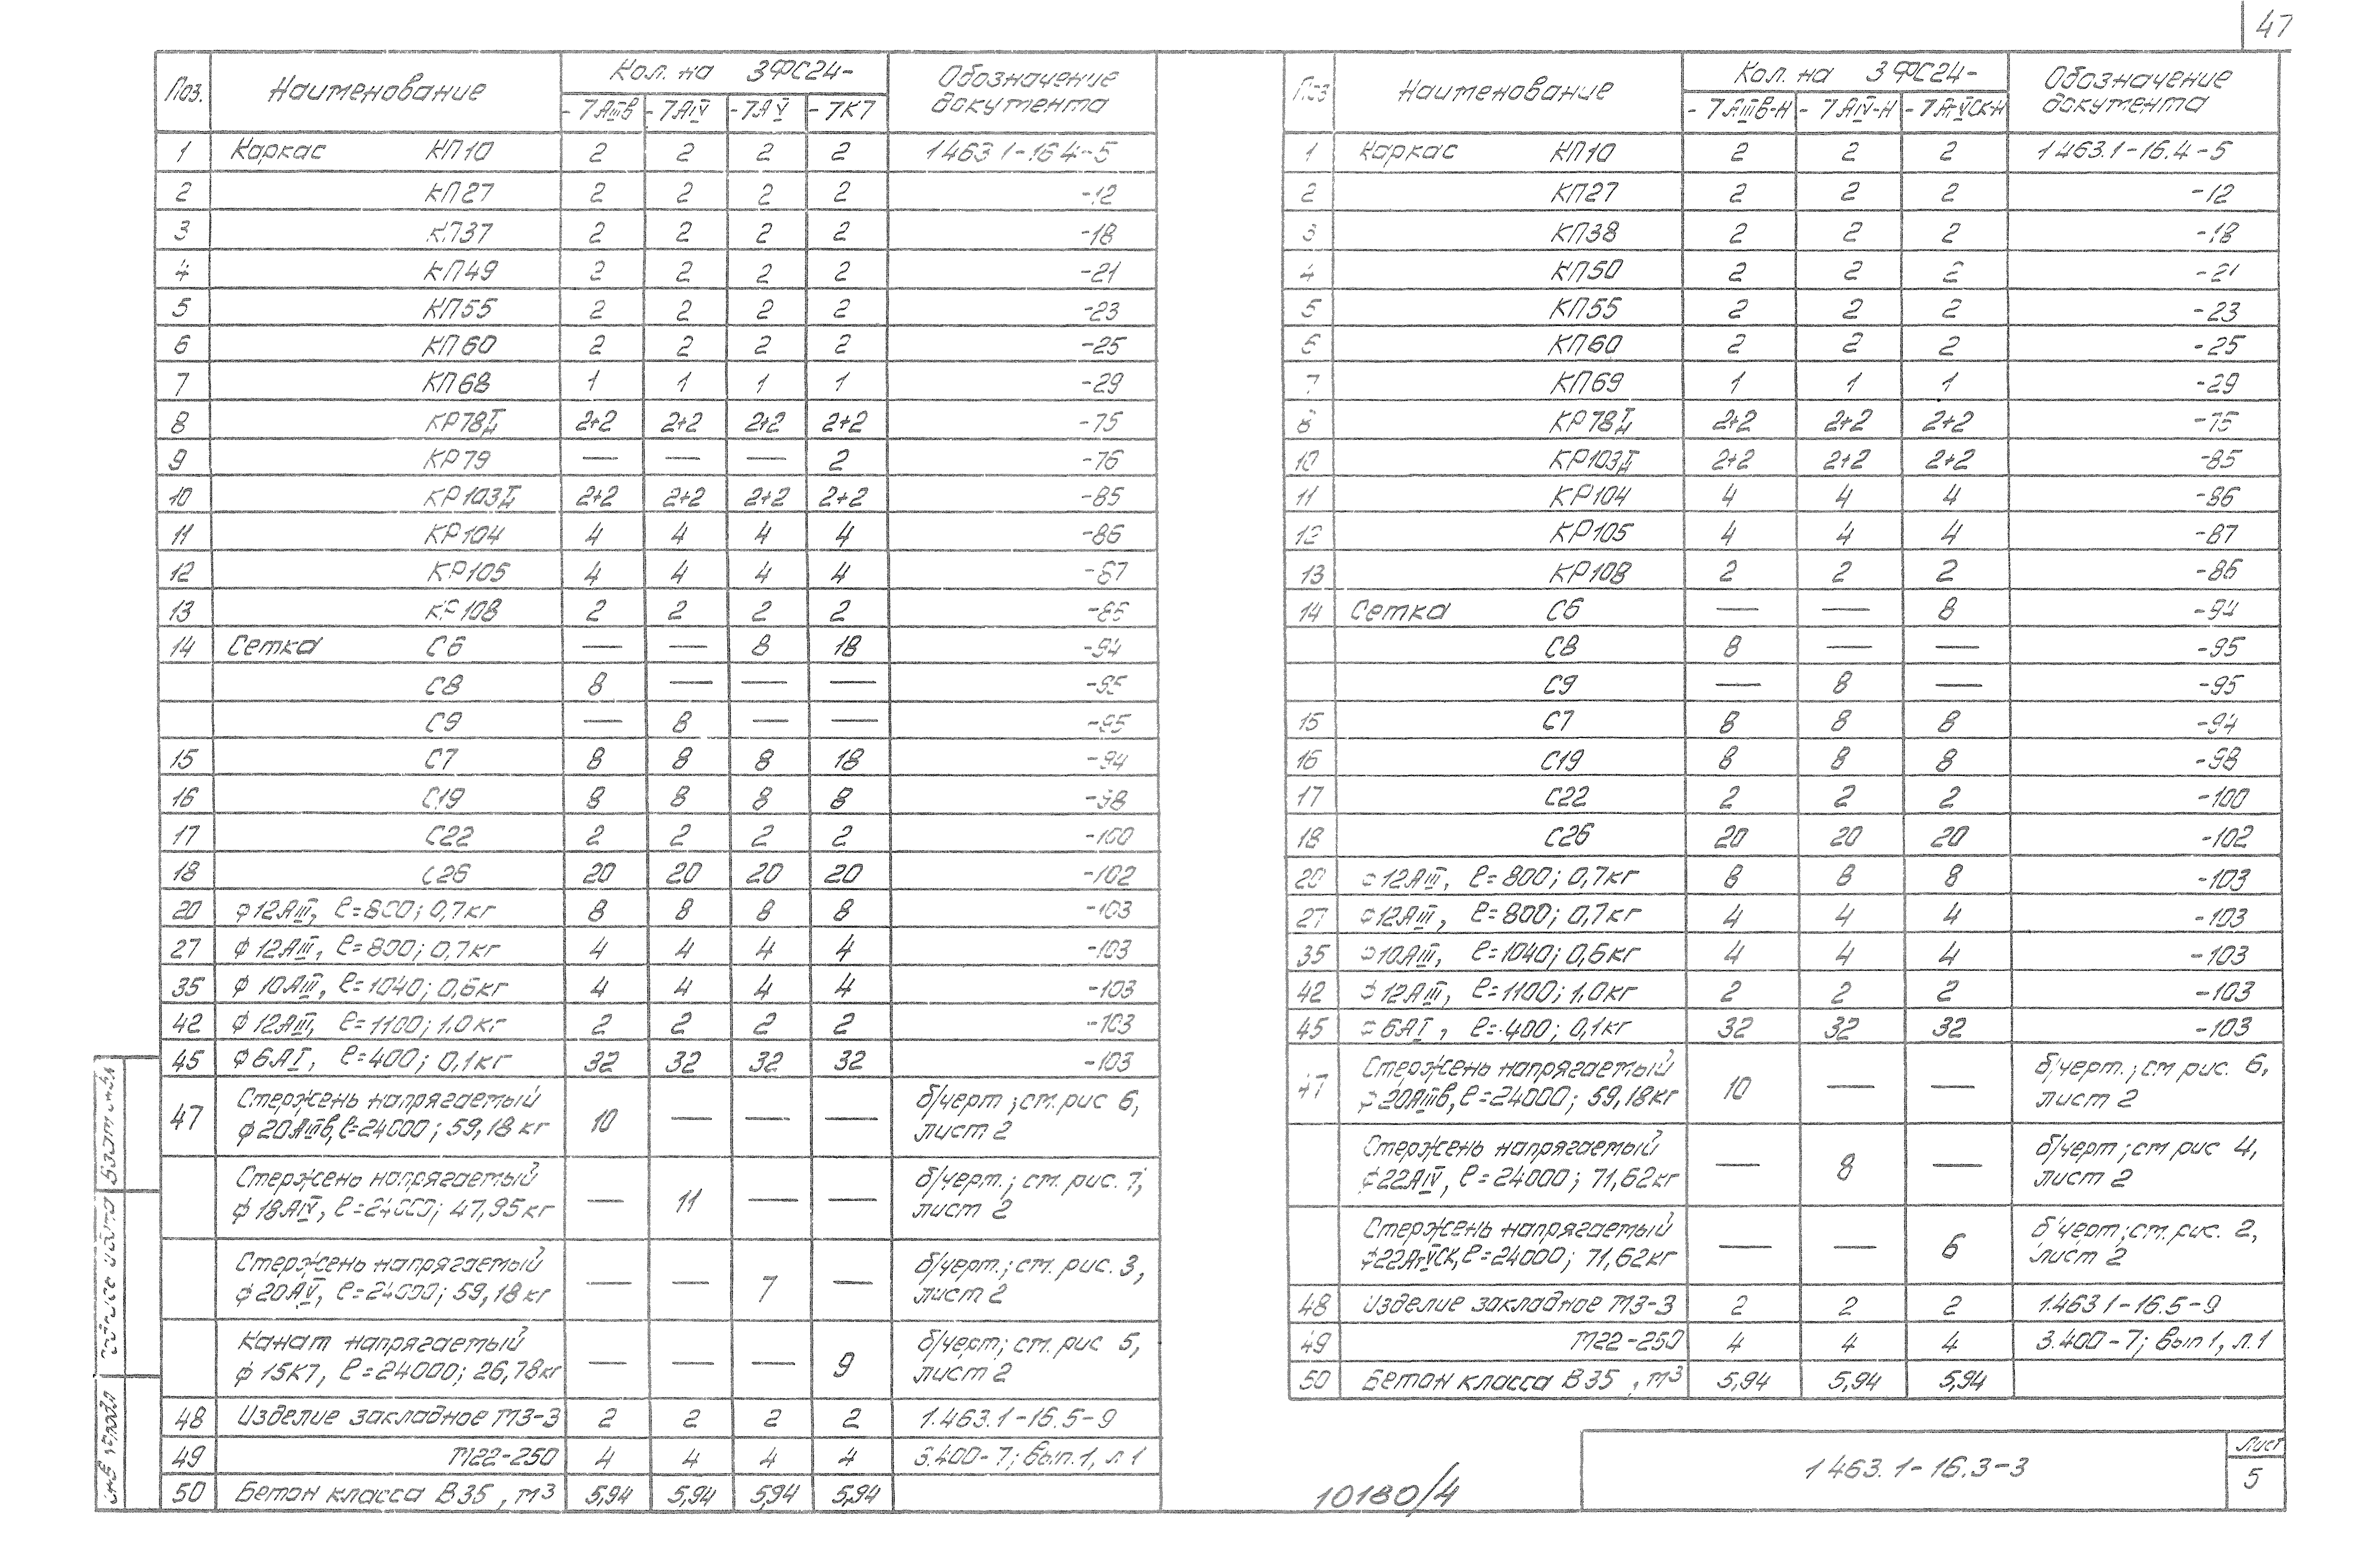 47
Поз. Наименование Кол. на 3ФС24- Обозначение документа
-7АIIIв -7АIV -7АV -7К7
1 Каркас КП10 2 2 2 2 1463 1-16 4-5
2 КП27 2 2 2 2 -12
3 КП37 2 2 2 2 -18
4 КП49 2 2 2 2 -21
5 КП55 2 2 2 2 -23
6 КП60 2 2 2 2 -25
7 КП68 1 1 1 1 -29
8 КР78Т/Н 2+2 2+2 2+2 2+2 -75
9 КР79 — — — 2 -76
10 КР103Т/Н 2+2 2+2 2+2 2+2 -85
11 КР104 4 4 4 4 -86
12 КР105 4 4 4 4 -87
13 КР108 2 2 2 2 -86
14 Сетка С6 — — 8 18 -94
С8 8 — — — -95
С9 — 8 — — -95
15 С7 8 8 8 18 -94
16 С19 8 8 8 8 -98
17 С22 2 2 2 2 -100
18 С26 20 20 20 20 -102
20 ф12АIII, ℓ=800; 0,7кг 8 8 8 8 -103
27 ф12АIII, ℓ=800; 0,7кг 4 4 4 4 -103
35 ф10АIII, ℓ=1040; 0,6кг 4 4 4 4 -103
42 ф12АIII, ℓ=1100; 1,0кг 2 2 2 2 -103
45 ф6АI, ℓ=400; 0,1кг 32 32 32 32 -103
47 Стержень напрягаемый 10 — — — б/черт; см. рис 6,
ф20АIIIв, ℓ=24000; 59,18кг лист 2
Стержень напрягаемый — 11 — — б/черт.; см. рис. 7,
ф18АIV, ℓ=24000; 47,95кг лист 2
Стержень напрягаемый — — 7 — б/черт.; см. рис. 3,
ф20АV, ℓ=24000; 59,18кг лист 2
Канат напрягаемый — — — 9 б/черт; см. рис 5,
ф15К7, ℓ=24000; 26,78кг лист 2
48 Изделие закладное М3-3 2 2 2 2 1.463.1-16.5-9
49 М22-250 4 4 4 4 3.400-7; вып.1, л 1
50 Бетон класса В35, м³ 5,94 5,94 5,94 5,94
Поз Наименование Кол. на 3ФС24- Обозначение документа
-7АIIIв-Н -7АIV-Н -7АтVСК-Н
1 Каркас КП10 2 2 2 1463.1-16.4-5
2 КП27 2 2 2 -12
3 КП38 2 2 2 -18
4 КП50 2 2 2 -21
5 КП55 2 2 2 -23
6 КП60 2 2 2 -25
7 КП69 1 1 1 -29
8 КР78Т/Н 2+2 2+2 2+2 -75
10 КР103Т/Н 2+2 2+2 2+2 -85
11 КР104 4 4 4 -86
12 КР105 4 4 4 -87
13 КР108 2 2 2 -86
14 Сетка С6 — — 8 -94
С8 8 — — -95
С9 — 8 — -95
15 С7 8 8 8 -94
16 С19 8 8 8 -98
17 С22 2 2 2 -100
18 С26 20 20 20 -102
20 ф12АIII, ℓ=800; 0,7кг 8 8 8 -103
27 ф12АIII, ℓ=800; 0,7кг 4 4 4 -103
35 ф10АIII, ℓ=1040; 0,6кг 4 4 4 -103
42 ф12АIII, ℓ=1100; 1,0кг 2 2 2 -103
45 ф6АI, ℓ=400; 0,1кг 32 32 32 -103
47 Стержень напрягаемый 10 — — б/черт.; см рис. 6,
ф20АIIIв, ℓ=24000; 59,18кг лист 2
Стержень напрягаемый — 8 — б/черт; см рис 4,
ф22АIV, ℓ=24000; 71,62кг лист 2
Стержень напрягаемый — — 6 б/черт; см. рис. 2,
ф22АтVСК, ℓ=24000; 71,62кг лист 2
48 Изделие закладное М3-3 2 2 2 1.463 1-16.5-9
49 М22-250 4 4 4 3.400-7; вып 1, л.1
50 Бетон класса В35, м³ 5,94 5,94 5,94
10180/4
1 463. 1-16.3-3
Лист
5